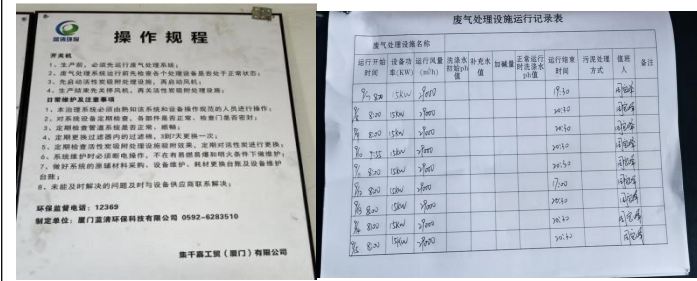 蓝清环保
操作规程
开关机
1、生产前，必须先运行废气处理系统；
2、废气处理系统运行前先检查各个处理设备是否处于正常状态；
3、先启动活性炭吸附处理设施，再启动风机；
4、生产结束先关停风机，再关活性炭吸附处理设施；
日常维护及注意事项
1、本治理系统必须由熟知该系统和设备操作规范的人员进行操作；
2、对系统设备定期检查，各部件是否正常，检查门是否密封；
3、定期检查管道系统是否正常、顺畅；
4、定期更换过滤器内的过滤棉，3到7天更换一次；
5、定期检查活性炭吸附处理设施吸附效果，定期对活性炭进行更换；
6、系统维护时必须断电操作，不在有易燃易爆和明火条件下做维护；
7、做好系统的原辅材料采购、设备维护、耗材更换台账及设备维护
台账；
8、未能及时解决的问题及时与设备供应商联系解决；
环保监督电话：12369
制定单位：厦门蓝清环保科技有限公司 0592-6283510
集千嘉工贸（厦门）有限公司
废气处理设施运行记录表
废气处理设施名称
运行开始时间 设备功率(KW) 运行风量(m³/h) 洗涤水初始ph值 补充水值 加碱量 正常运行时洗涤水ph值 运行结束时间 污泥处理方式 值班人 备注
8:00 15KW 29000 19:30
8:00 15KW 29000 20:30
8:00 15KW 29000 20:30
7:55 15KW 29000 20:30
8:00 15KW 29000 20:30
8:00 15KW 29000 17:00
8:00 15KW 29000 20:30
8:00 15KW 29000 20:30
8:00 15KW 29000 20:30